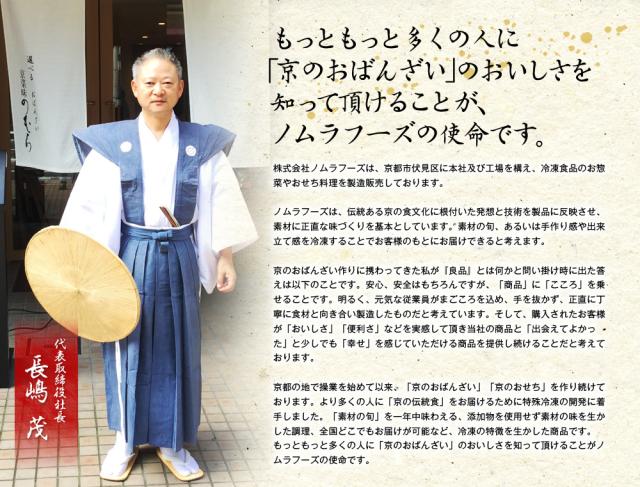 もっともっと多くの人に
「京のおばんざい」のおいしさを
知って頂けることが、
ノムラフーズの使命です。
株式会社ノムラフーズは、京都市伏見区に本社及び工場を構え、冷凍食品のお惣
菜やおせち料理を製造販売しております。
ノムラフーズは、伝統ある京の食文化に根付いた発想と技術を製品に反映させ、
素材に正直な味づくりを基本としています。素材の旬、あるいは手作り感や出来
立て感を冷凍することでお客様のもとにお届けできると考えます。
京のおばんざい作りに携わってきた私が『良品』とは何かと問い掛け時に出た答
えは以下のことです。安心、安全はもちろんですが、「商品」に「こころ」を乗
せることです。明るく、元気な従業員がまごころを込め、手を抜かず、正直に丁
寧に食材と向き合い製造したものだと考えています。そして、購入されたお客様
が「おいしさ」「便利さ」などを実感して頂き当社の商品と「出会えてよかっ
た」と少しでも「幸せ」を感じていただける商品を提供し続けることだと考えて
おります。
京都の地で操業を始めて以来、「京のおばんざい」「京のおせち」を作り続けて
おります。より多くの人に「京の伝統食」をお届けるために特殊冷凍の開発に着
手しました。「素材の旬」を一年中味わえる、添加物を使用せず素材の味を生か
した調理、全国どこでもお届けが可能など、冷凍の特徴を生かした商品です。
もっともっと多くの人に「京のおばんざい」のおいしさを知って頂けることがノ
ムラフーズの使命です。
選べる おばんざい
京菜味 のむら
代表取締役社長
長嶋 茂